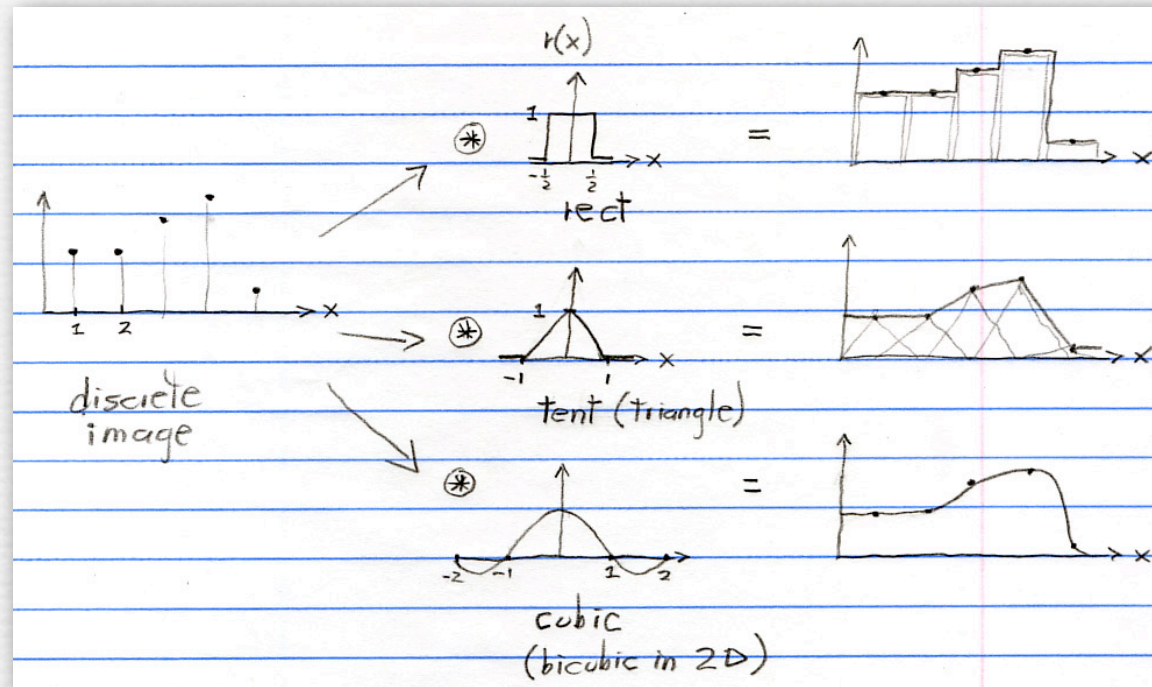 r(x)
1
-½ ½
x
rect
⊛
=
x
1 2
x
discrete
image
⊛
1
-1 1
x
tent (triangle)
=
x
⊛
-2 -1 1 2
cubic
(bicubic in 2D)
=
x